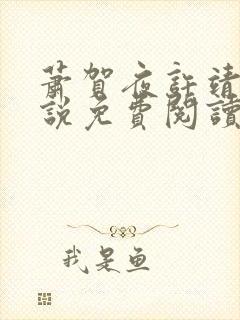 萧贺夜許靖
說免費閱讀
我是鱼